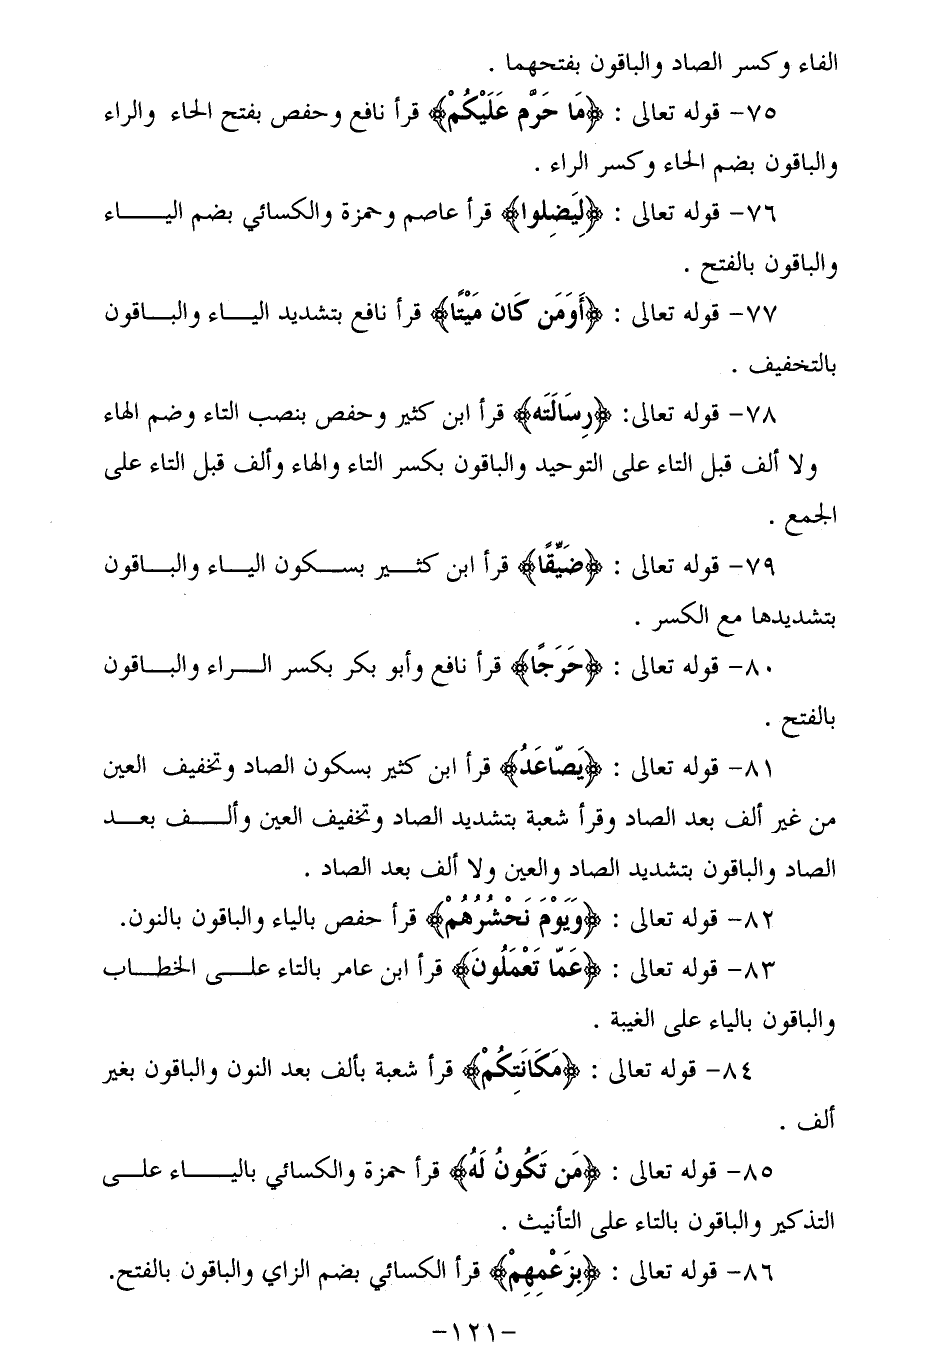 الفاء وكسر الصاد والباقون بفتحهما .
٧٥- قوله تعالى : ﴿مَا حَرَّم عَلَيْكُمْ﴾ قرأ نافع وحفص بفتح الحاء والراء
والباقون بضم الحاء وكسر الراء .
٧٦- قوله تعالى : ﴿لِيَضِلوا﴾ قرأ عاصم وحمزة والكسائي بضم اليـــــاء
والباقون بالفتح .
٧٧- قوله تعالى : ﴿أَوَمَن كَان مَيْتًا﴾ قرأ نافع بتشديد اليـــاء والبـــاقون
بالتخفيف .
٧٨- قوله تعالى: ﴿رِسَالَتَه﴾ قرأ ابن كثير وحفص بنصب التاء وضم الهاء
ولا ألف قبل التاء على التوحيد والباقون بكسر التاء والهاء وألف قبل التاء على
الجمع .
٧٩- قوله تعالى : ﴿ضَيِّقًا﴾ قرأ ابن كثـــير بســـكون اليـــاء والبـــاقون
بتشديدها مع الكسر .
٨٠- قوله تعالى : ﴿حَرَجًا﴾ قرأ نافع وأبو بكر بكسر الـــراء والبـــاقون
بالفتح .
٨١- قوله تعالى : ﴿يَصّاعَدُ﴾ قرأ ابن كثير بسكون الصاد وتخفيف العين
من غير ألف بعد الصاد وقرأ شعبة بتشديد الصاد وتخفيف العين وألـــف بعـــد
الصاد والباقون بتشديد الصاد والعين ولا ألف بعد الصاد .
٨٢- قوله تعالى : ﴿وَيَوْمَ نَحْشُرُهُمْ﴾ قرأ حفص بالياء والباقون بالنون.
٨٣- قوله تعالى : ﴿عَمّا تَعْمَلُونَ﴾ قرأ ابن عامر بالتاء علـــى الخطـــاب
والباقون بالياء على الغيبة .
٨٤- قوله تعالى : ﴿مَكَانَتِكُمْ﴾ قرأ شعبة بألف بعد النون والباقون بغير
ألف .
٨٥- قوله تعالى : ﴿مَن تَكُونُ لَهُ﴾ قرأ حمزة والكسائي باليـــــاء علـــى
التذكير والباقون بالتاء على التأنيث .
٨٦- قوله تعالى : ﴿بِزَعْمِهِمْ﴾ قرأ الكسائي بضم الزاي والباقون بالفتح.
-١٢١-